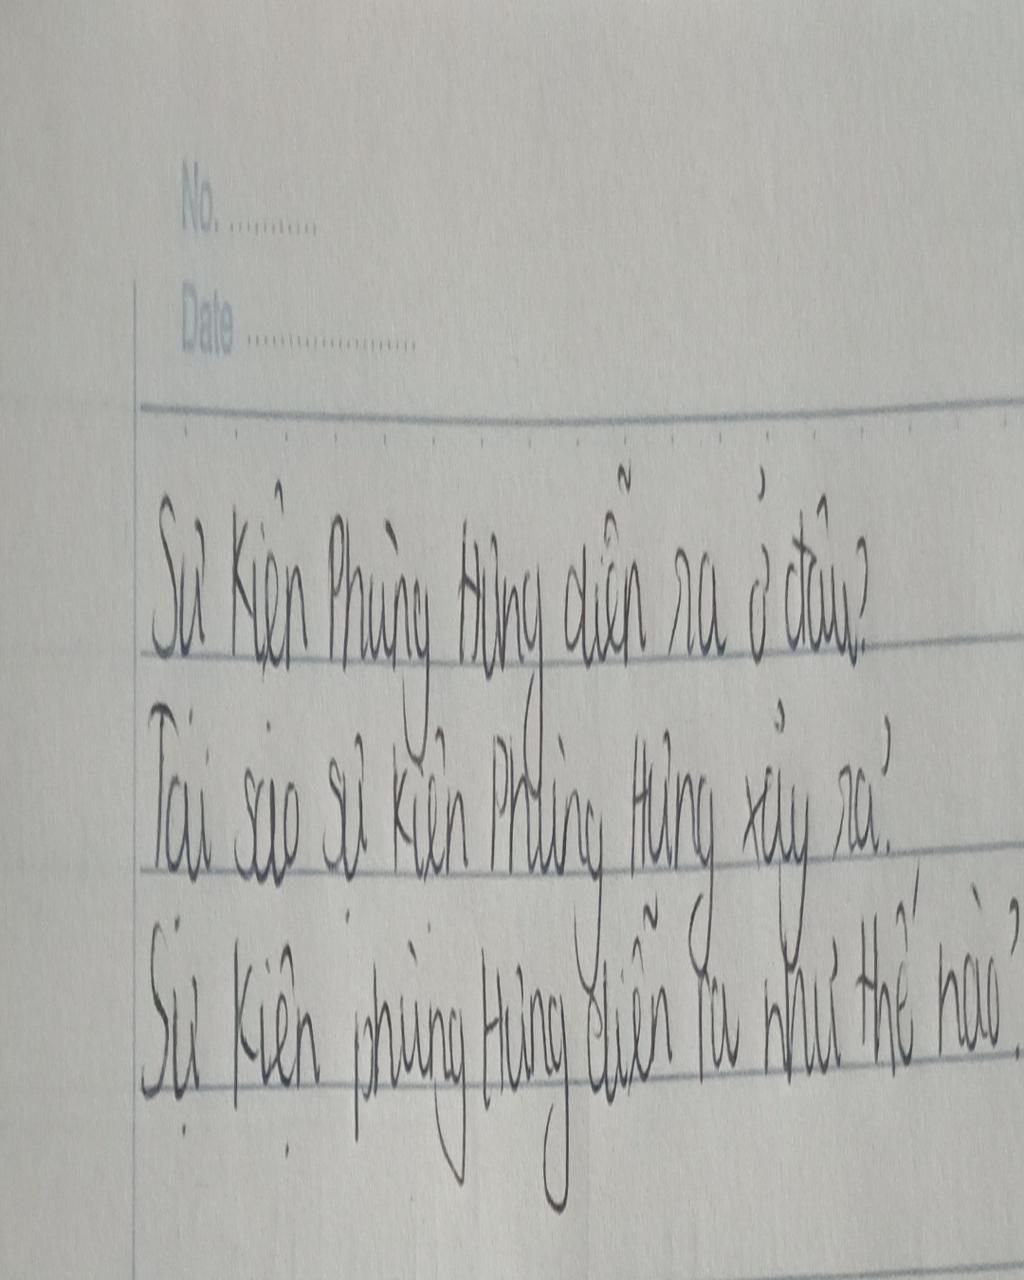 No. ..........
Date ...................
Sự kiện Phùng Hưng diễn ra ở đâu?
Tại sao sự kiện Phùng Hưng xảy ra?
Sự kiện phùng Hưng diễn ra như thế nào?